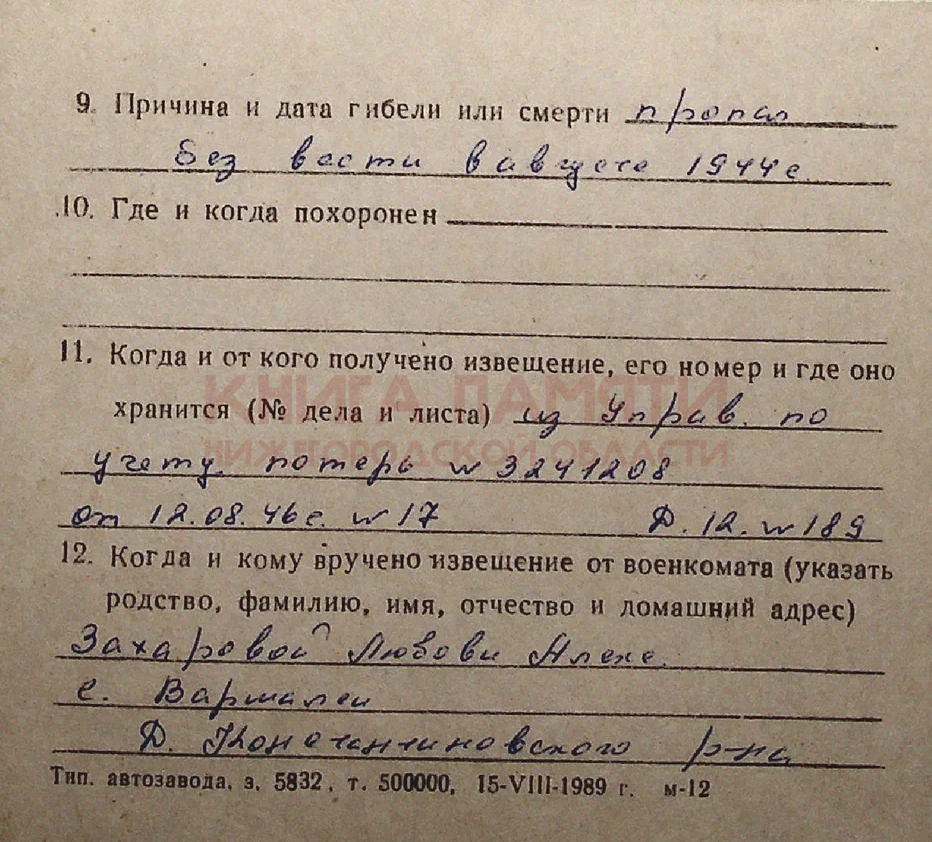 9. Причина и дата гибели или смерти пропал
без вести в августе 1944 г.
10. Где и когда похоронен
11. Когда и от кого получено извещение, его номер и где оно
КНИГА ПАМЯТИ
хранится (№ дела и листа) из Управ. по
НИЖЕГОРОДСКОЙ ОБЛАСТИ
учету потерь № 3241208
от 12.08.46 г. № 17 Д. 12. № 189
12. Когда и кому вручено извещение от военкомата (указать
родство, фамилию, имя, отчество и домашний адрес)
Захаровой Любови Алекс.
с. Вармалеи
Д. Константиновского р-на
Тип. автозавода, з. 5832, т. 500000, 15-VIII-1989 г. м-12